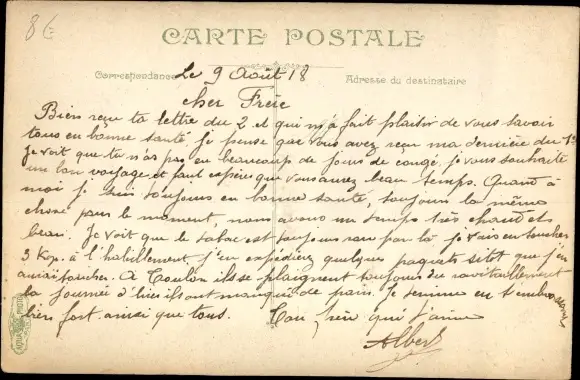 8€
CARTE POSTALE
Correspondance
Adresse du destinataire
Le 9 Août 18
cher Frère
Bien reçu ta lettre du 2 et qui m'a fait plaisir de vous savoir
tous en bonne santé. je pense que vous avez reçu ma dernière du
Je voit que tu n'as pas eu beaucoup de jours de congé, je vous souhaite
un bon voyage et faut espérer que vous aurez beau temps. Quand à
moi je suis toujours en bonne santé, toujours la même
chose pour le moment, nous avons un temps très chaud et
beau. Je voit que le tabac est toujours rare par là je vais en toucher
3 à l'habillement, j'en expédierez quelques paquets sitot que j'en
A Toulon ils se plaignent toujours du ravitaillement
la journée d'hier ils ont manqué de pain. Je termine en t'embrassant
bien fort ainsi que tous. Ton frère qui t'aime
Albert